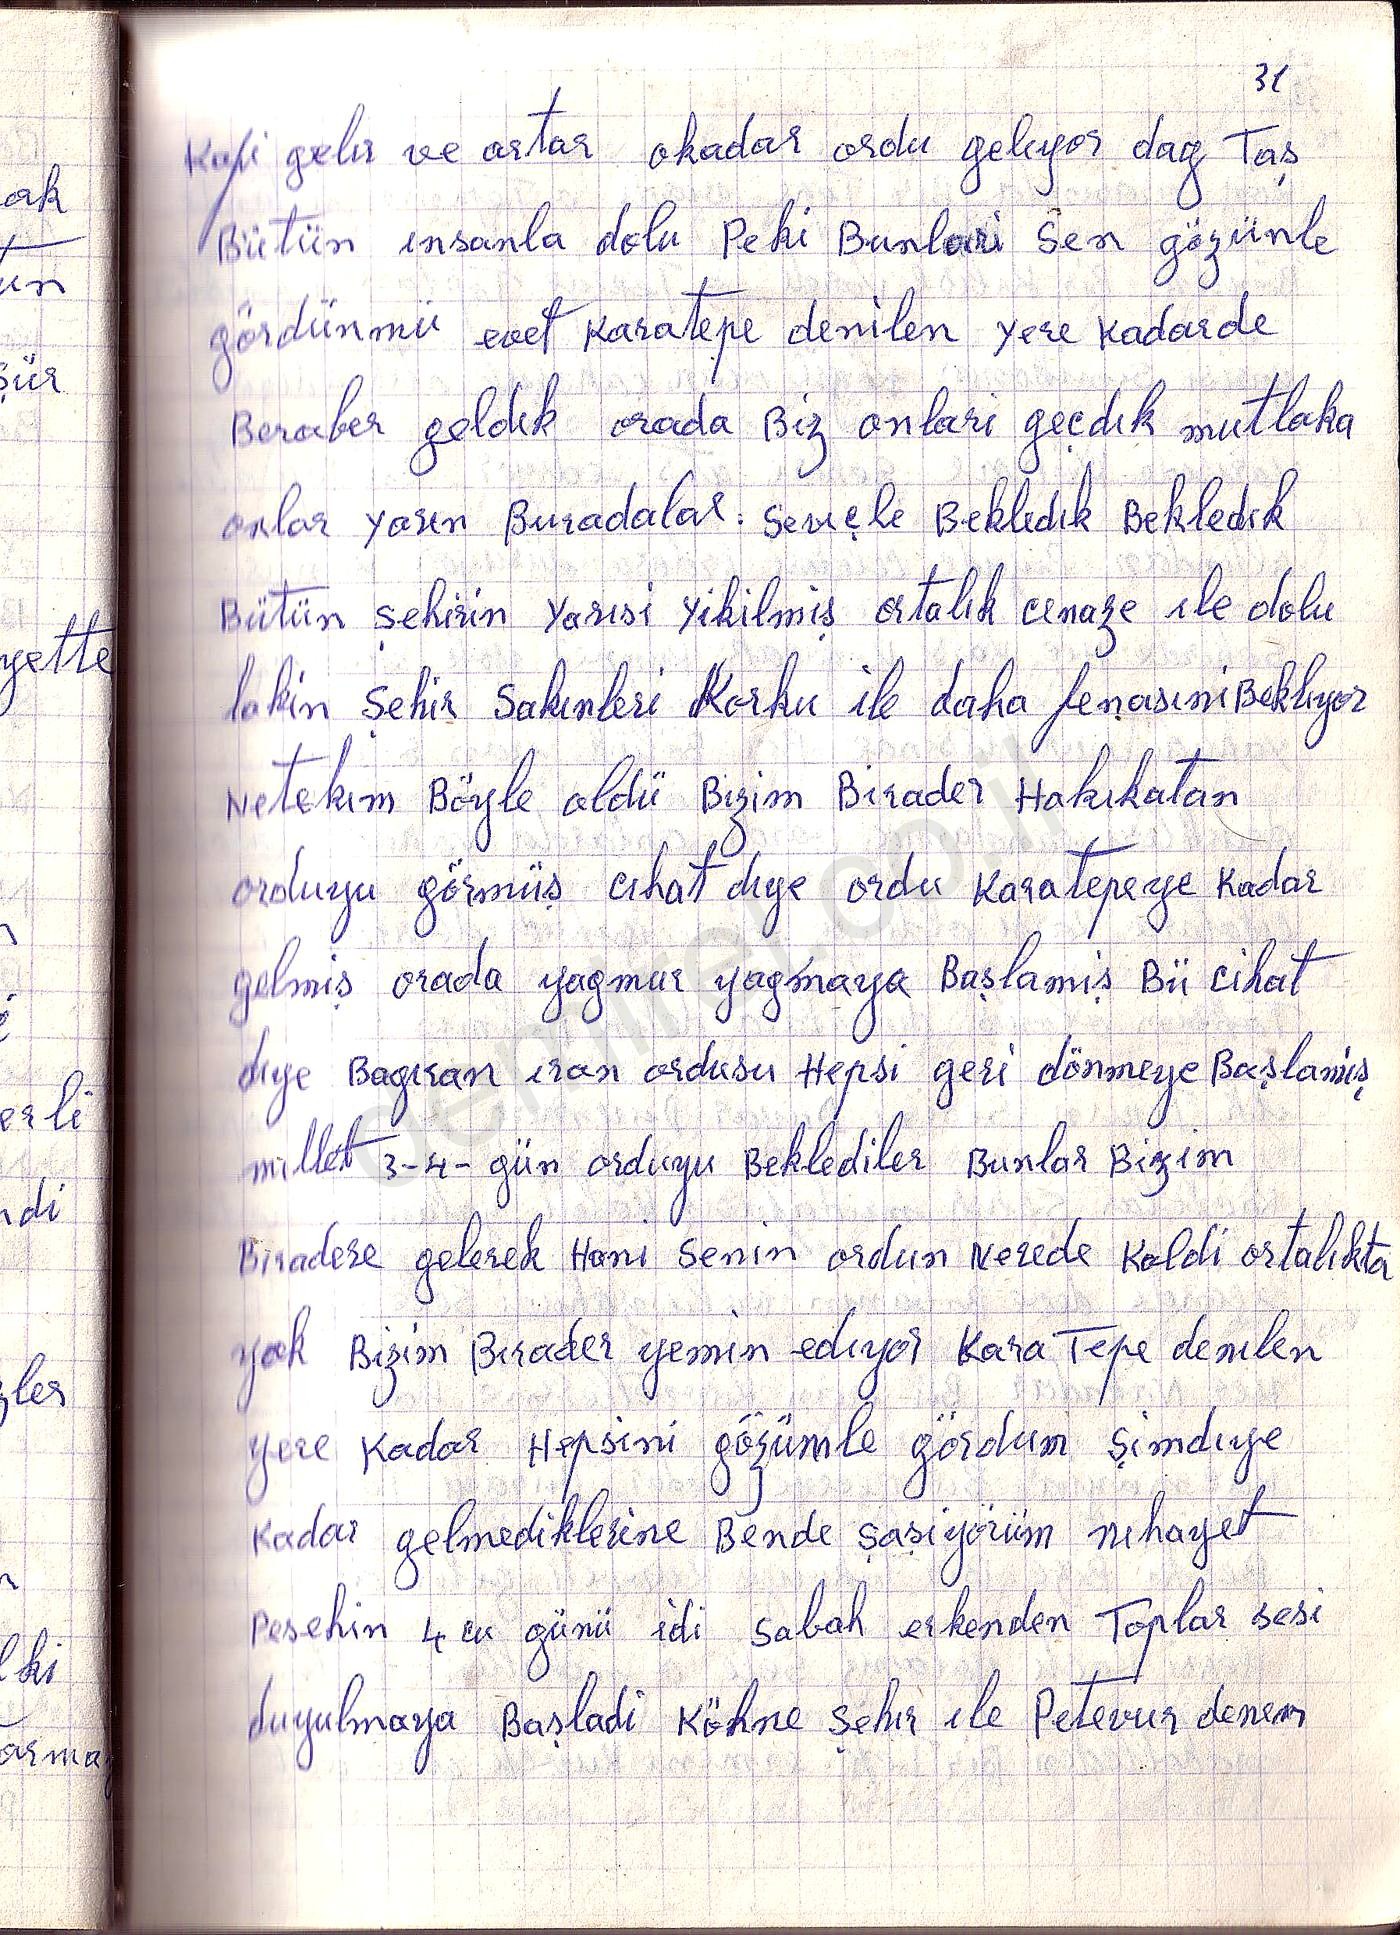 31
Kafi gelır ve artar okadar ordu gelıyor dag Taş
Bütün ınsanla dolu Peki Bunlari Sen gözünle
gördünmü evet Karatepe denilen Yere Kadarde
Beraber geldık orada Biz onlari geçdık mutlaka
onlar Yarın Buradalar. Sevıçle Bekledık Bekledık
Bütün Şehirin Yarısi Yikilmiş ortalık cenaze ıle dolu
lakin Şehir Sakınleri Korku ile daha fenasıni Beklıyor
Netekım Böyle oldü Bizim Birader Hakıkatan
orduyu görmüş cıhat dıye ordu Karatepeye Kadar
gelmiş orada yagmur yagmaya Başlamiş Bü cihat
dıye Bagıran ıran ordusu Hepsi geri dönmeye Başlamış
millet 3-4- gün orduyu Beklediler Bunlar Bizim
Bıradere gelerek Hani Senin ordun Nerede Kaldi ortalıkta
yok Bizim Bırader yemin edıyor Kara Tepe denılen
yere Kadar Hepsini gözümle gördum Şimdıye
Kadar gelmediklerine Bende Şaşiyörüm nıhayet
Pesehin 4 cu günü idi Sabah erkenden Toplar sesi
duyulmaya Başladi Köhne Şehır ıle Petevur denen
ak
un
şür
yette
erli
ndi
zler
lki
arma
demirel.co.il